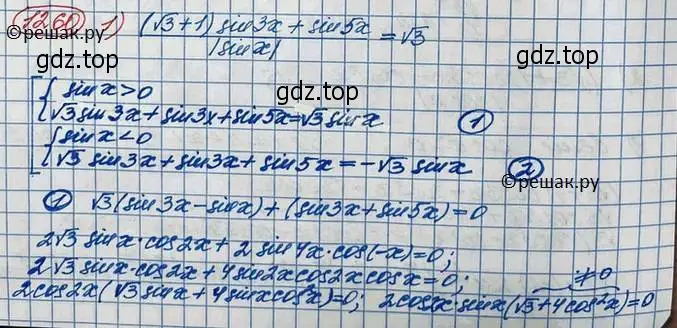 1260 1) (√3+1) sin3x + sin5x / |sinx| = √3
©reшак.ру
gdz.top
gdz.top
{ sinx>0
√3 sin3x + sin3x + sin5x = √3 sinx (1)
{ sinx<0
√3 sin3x + sin3x + sin5x = -√3 sinx (2)
©reшак.ру
(1) √3(sin3x - sinx) + (sin3x + sin5x) = 0
2√3 sinx · cos2x + 2 sin4x · cos(-x) = 0;
2√3 sinx · cos2x + 4 sin2x cos2x cosx = 0; ≠0
2cos2x(√3 sinx + 4 sinx cos²x) = 0; 2cos2x · sinx(√3 + 4cos²x) = 0
gdz.top
gdz.top